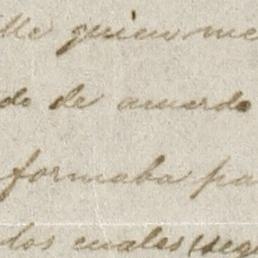 lle quien me
do de acuerdo
formaba pa
los cuales (seg